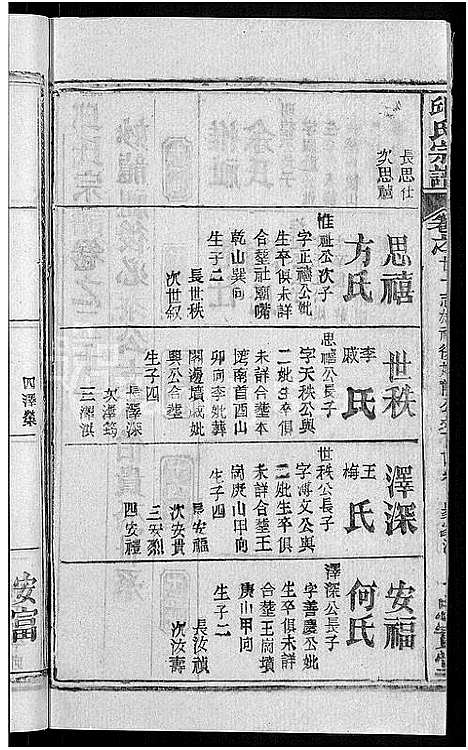 邱氏宗譜
長思仕
次思禧
思禧
方氏
惟祉公次子
字正禧公妣
生卒俱未詳
合塟社廟嘴
乾山巽向
生子二
長世秩
次世叙
世秩
李氏
戚氏
思禧公長子
字天秩公與
二妣生卒俱
未詳合塟本
塆南首酉山
卯向李妣葬
閣邊墳戚妣
與公合塟
生子四
長澤深
次澤筠
三澤淇
四澤燊
澤深
王氏
梅氏
世秩公長子
字溥文公與
二妣生卒俱
未詳合塟王
岡庚山甲向
生子四
長安福
次安貴
三安烈
四安禮
安福
何氏
澤深公長子
字善慶公妣
生卒俱未詳
合塟王岗墳
庚山甲向
生子二
長汝禎
次汝壽
安富